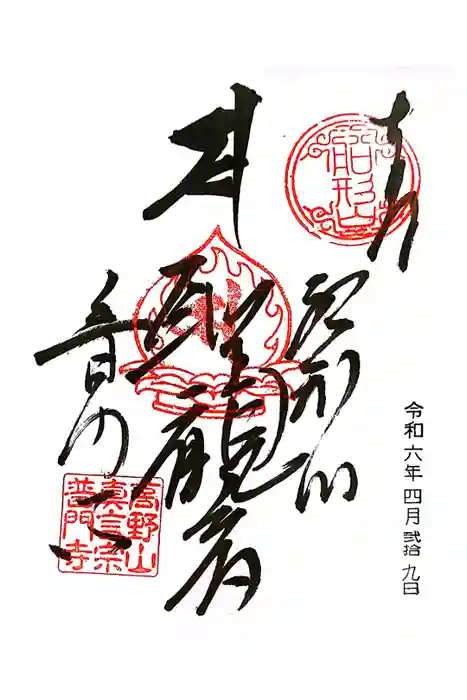 奉拝
船形山
令和六年四月弐拾九日
船形山
聖観音
普門寺
高野山
真言宗
普門寺